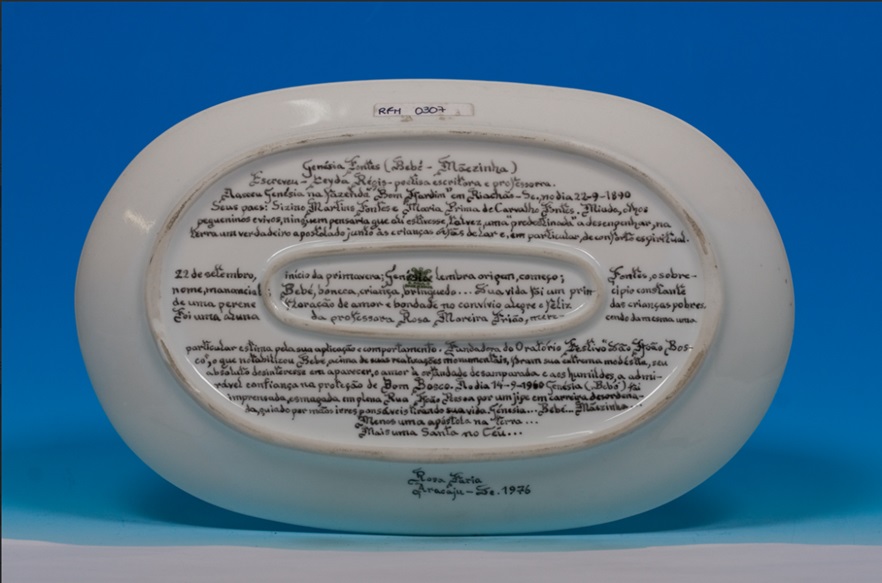 RFH 0307
Genésia Fontes (Bebé - Mãezinha)
Escreveu - Leyda Régis - poetisa escritora e professora.
Nasceu Genésia na fazenda "Bom Jardim" em Riachão - Se, no dia 22-9-1890
Seus pais: Sizino Martins Fontes e Maria Prima de Carvalho Fontes. Miudo, olhos
pequeninos e vivos, ninguem pensaria que ali estivesse, talvez, uma predestinada a desempenhar, na
terra um verdadeiro apostolado junto às crianças orfãs de lar e, em particular, de conforto espiritual.
22 de setembro, início da primavera; Genésia lembra origem, começo; Fontes, o sobre-
nome, manancial; Bebé, boneca, criança, brinquedo... Sua vida foi um prin- cipio constante
de uma perene floração de amor e bondade no convívio alegre e feliz das crianças pobres.
Foi uma aluna da professora Rosa Moreira Frião, mere- cendo da mesma uma
particular estima pela sua aplicação e comportamento. Fundadora do Oratório Festivo São João Bos-
co", o que notabilizou Bebé, acima de suas realizações monumentais, foram sua extrema modéstia, seu
absoluto desinteresse em aparecer, o amor à orfandade desamparada e aos humildes, a admi-
rável confiança na proteção de Dom Bosco. No dia 14-9-1960 Genésia (Bebé) foi
imprensada, esmagada em plena Rua João Pessoa por um jipe em carreira desordena-
da, guiado por mãos irresponsáveis tirando sua vida. Genésia... Bebé... Mãezinha...
Menos uma apóstola na terra...
Mais uma Santa no Céu...
Rosa Faria
Aracaju - Se. 1976